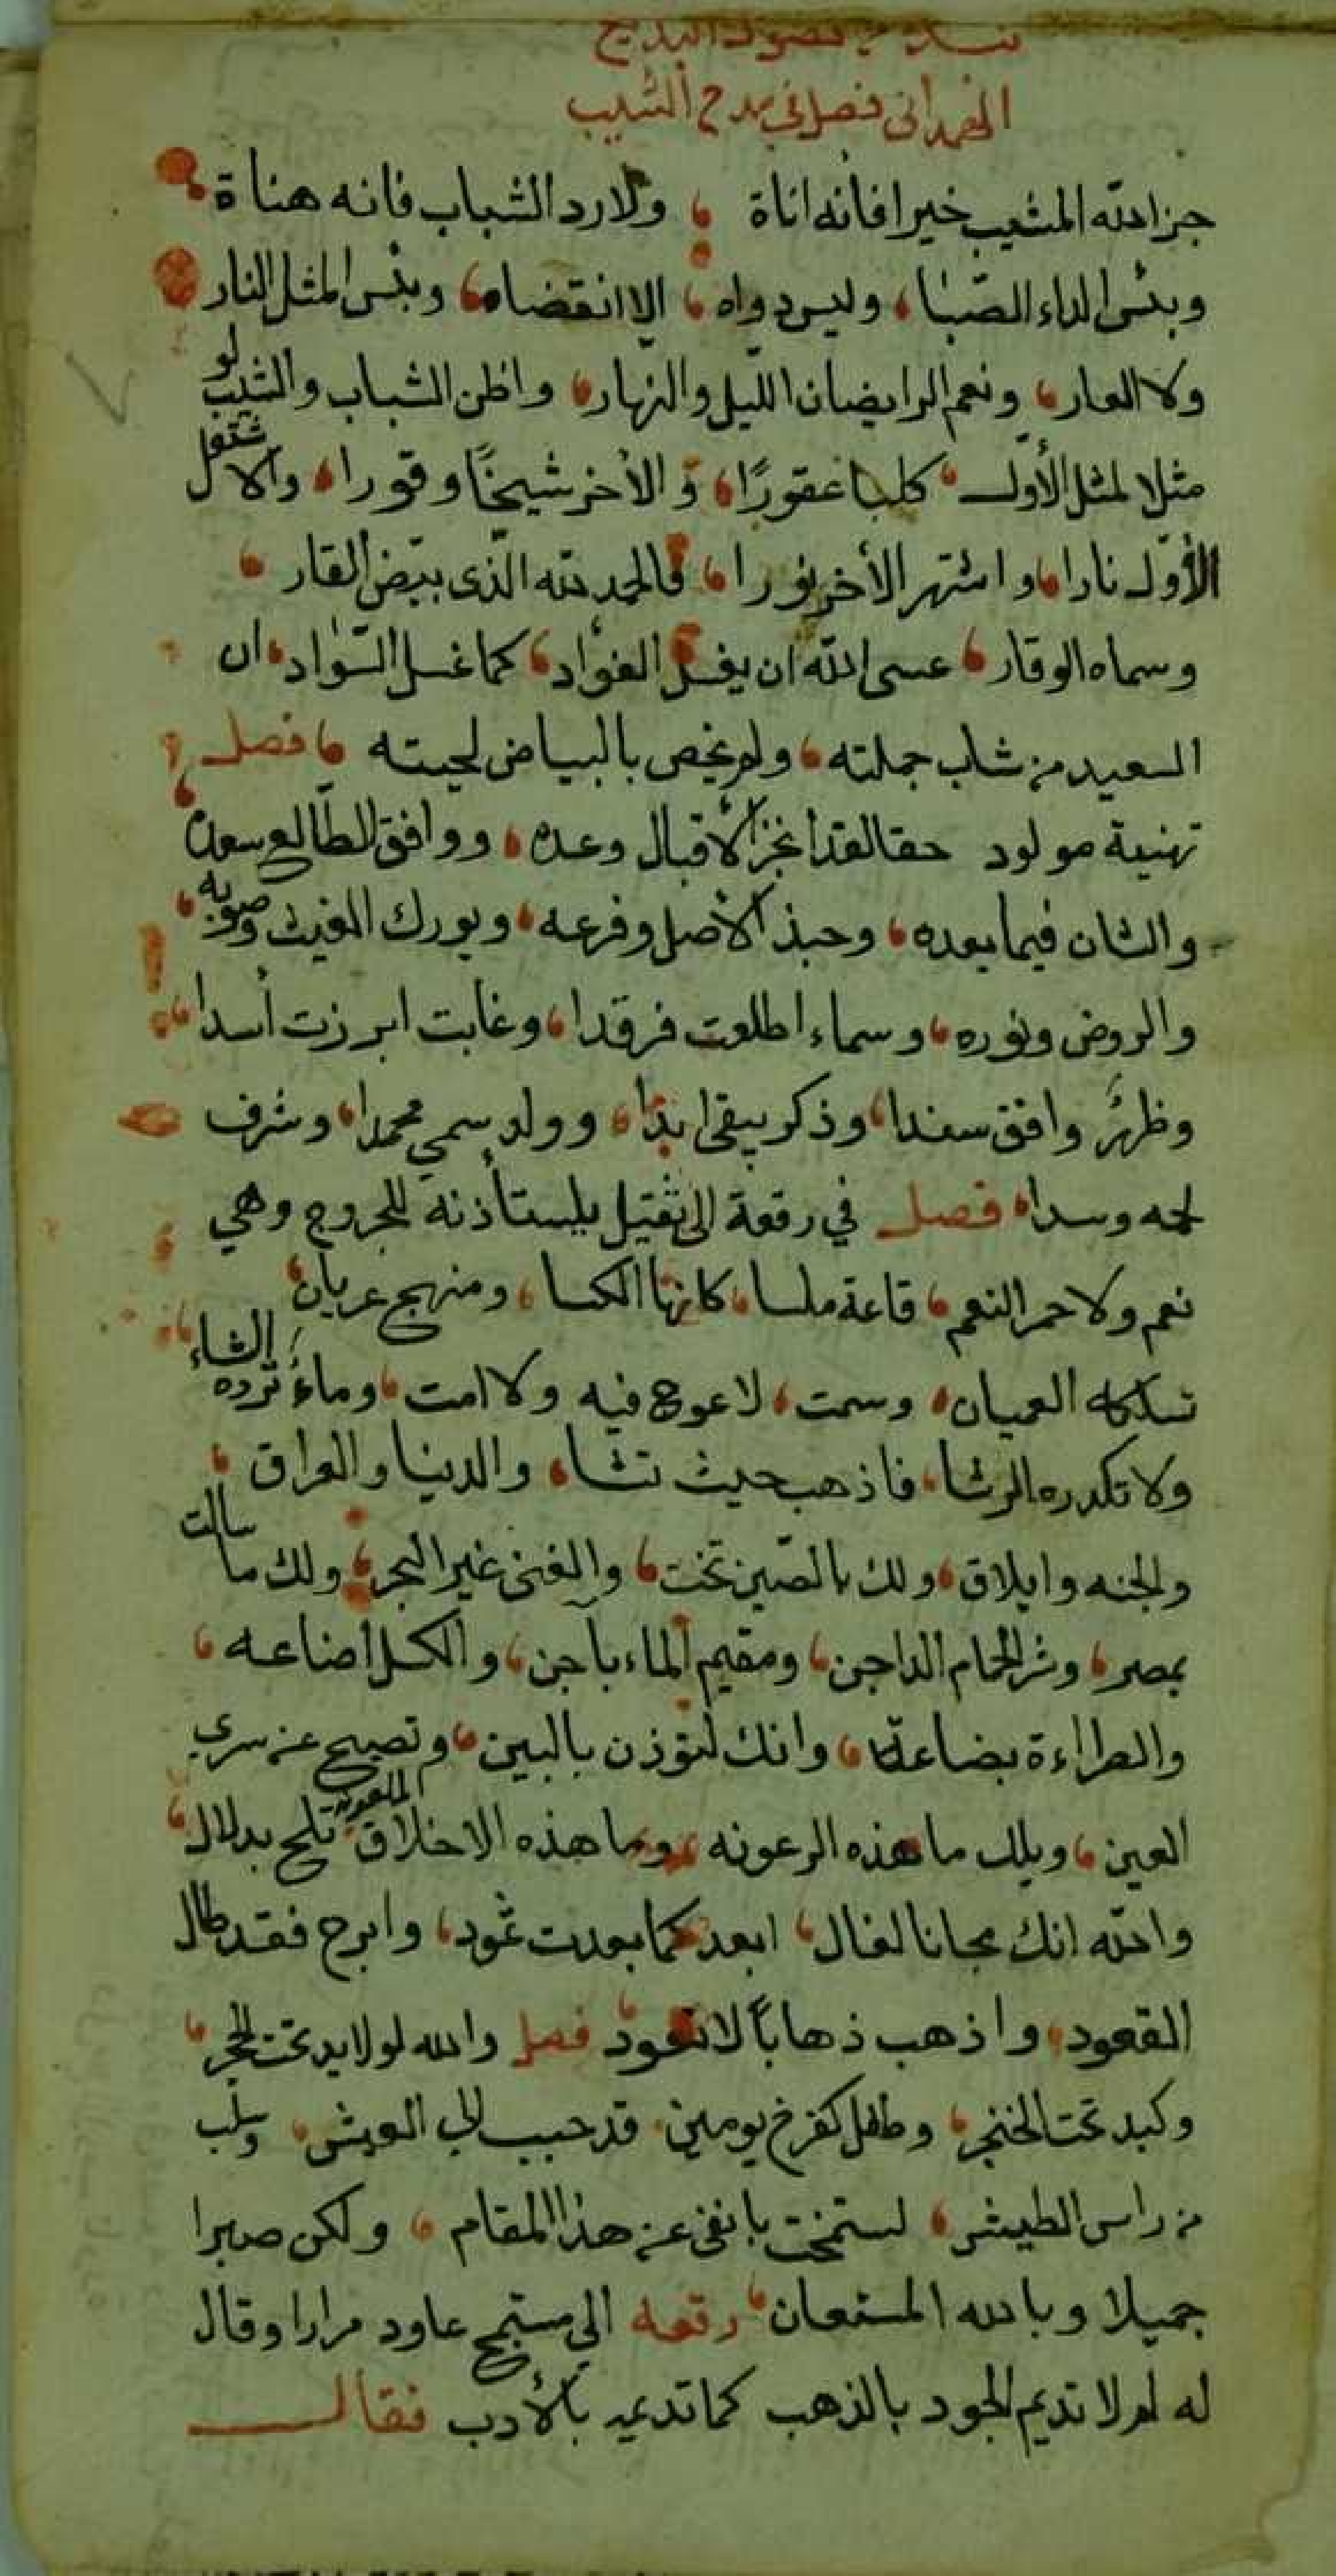 فصول البديع
الهمداني فصل في مدح الشيب
جزا الله المشيب خيرا فانه اناة ولا رد الشباب فانه هناة
وبئس الداء الصبا وليس دواه الا انقضاه وبئس المثل النار
ولا العار ونعم الرايضان الليل والنهار واظن الشباب والشيب لو
مثلا لمثل الأول كلبا عقورًا والأخر شيخًا وقورا والاشتعل
الأول نارا واشتهر الأخر نورا فالحمد لله الذي بيض القار
وسماه الوقار عسى الله ان يغسل الفؤاد كما غسل السواد ان
السعيد من شاب جملته ولم يخص بالبياض لحيته فصل
تهنية مولود حقا لقد انجز الأقبال وعده ووافق الطالع سعده
والشان فيما بعده وحبذ الأصل وفرعه وبورك الغيث وصوبه
والروض ونوره وسماء اطلعت فرقدا وغابت ابرزت أسدا
وظهرٌ وافق سندا وذكر يبقى ابدا وولد سمي محمدا وشرف
لحمه وسداه فصل في رقعة الى ثقيل يستأذنه للخروج وهي
نعم ولا حمر النعم قاعة ملسا كانها الكسا ومنهج عريان
تسلكه العميان وسمت لا عوج فيه ولا امت وماءٌ ترده الشاء
ولا تكدره الرشا فاذهب حيث تشا والدنيا والعراق
والجنه وايلاق ولك بالصين تخت والغنى غير البحر ولك ما سالت
بمصر وشر الحمام الداجن ومقيم الماء بآجن والكل أضاعه
والطراءة بضاعة وانك لتؤذن بالبين وتصبح عن سري
العين ويلك ما هذه الرعونه وما هذه الاخلاق الملعونه تلح بدلال
والله انك مجانا لغال ابعد كما بعدت ثمود وابرح فقد طال
القعود واذهب ذهابًا لا تعود فصل والله لولا يد تحت الحجر
وكبد تحت الخنجر وطفل كفرخ يومين قد حبب الي العيش وسلب
من راس الطيش لستمخت بانفي عن هذا المقام ولكن صبرا
جميلا وبالله المستعان رقعه الي مستميح عاود مرارا وقال
له لم لا تديم الجود بالذهب كما تديمه بالأدب فقال